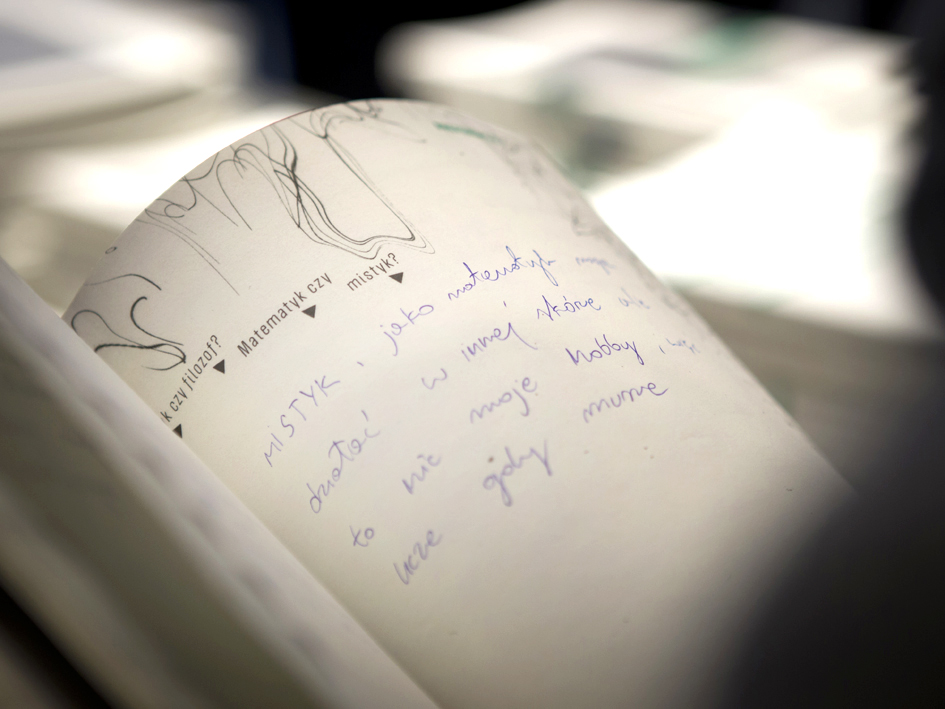 k czy filozof?
Matematyk czy
mistyk?
MISTYK, jako matematyk mogę
działać w innej skórze ale
to nie moje hobby,
uczę gdy muszę